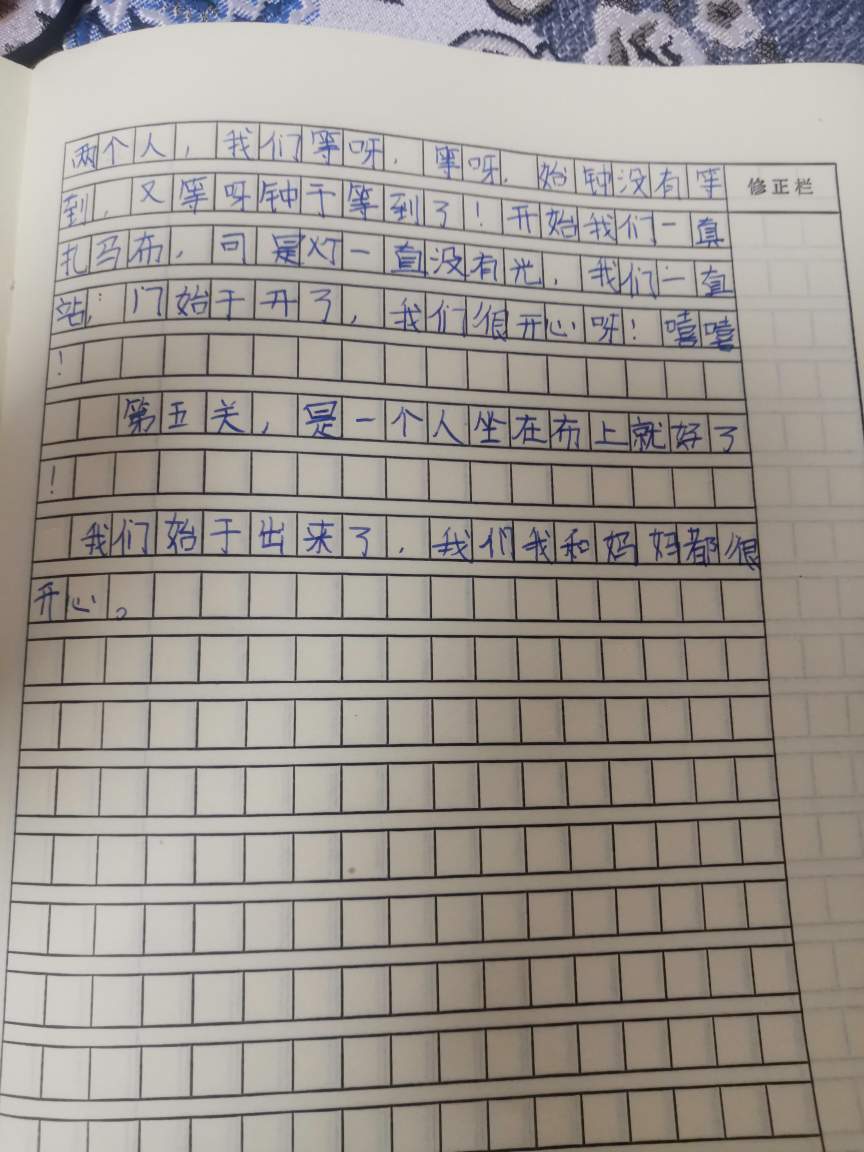 两个人，我们等呀，等呀，始钟没有等
修正栏
到，又等呀钟于等到了！开始我们一直
扎马布，司是灯一直没有光，我们一直
站；门始于开了，我们很开心呀！嘻嘻
！
第五关，是一个人坐在布上就好了
！
我们始于出来了，我们我和妈妈都很
开心。